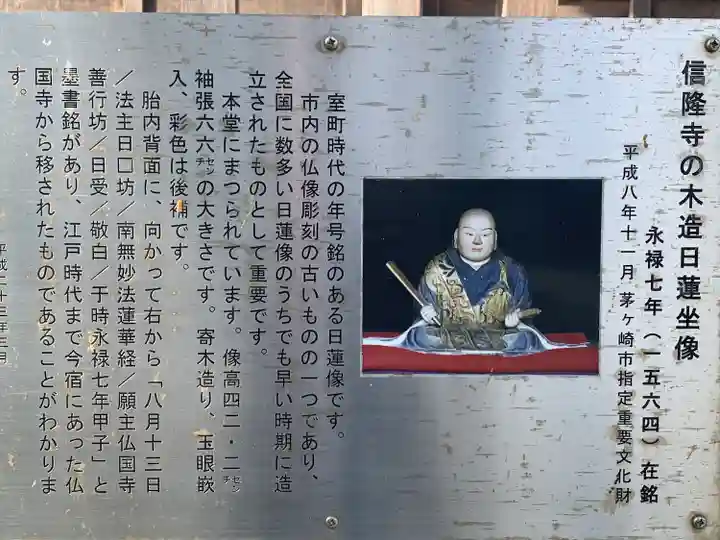 信隆寺の木造日蓮坐像
永禄七年（一五六四）在銘
平成八年十一月 茅ヶ崎市指定重要文化財
室町時代の年号銘のある日蓮像です。
市内の仏像彫刻の古いものの一つであり、
全国に数多い日蓮像のうちでも早い時期に造
立されたものとして重要です。
本堂にまつられています。像高四二・二センチ
袖張六六センチの大きさです。寄木造り、玉眼嵌
入、彩色は後補です。
胎内背面に、向かって右から「八月十三日
／法主日口坊／南無妙法蓮華経／願主仏国寺
善行坊／日受／敬白／于時永禄七年甲子」と
墨書銘があり、江戸時代まで今宿にあった仏
国寺から移されたものであることがわかりま
す。
平成二十三年三月